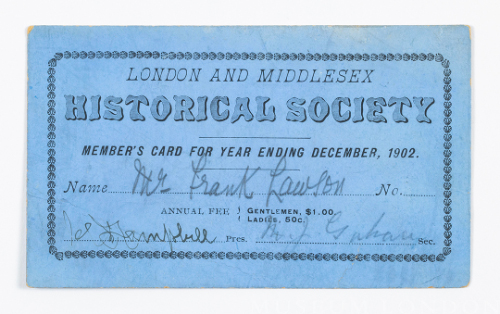 LONDON AND MIDDLESEX
HISTORICAL SOCIETY
MEMBER'S CARD FOR YEAR ENDING DECEMBER, 1902.
Name Mr Frank Lawson No.
ANNUAL FEE { GENTLEMEN, $1.00
LADIES, 50c.
Pres. Sec.